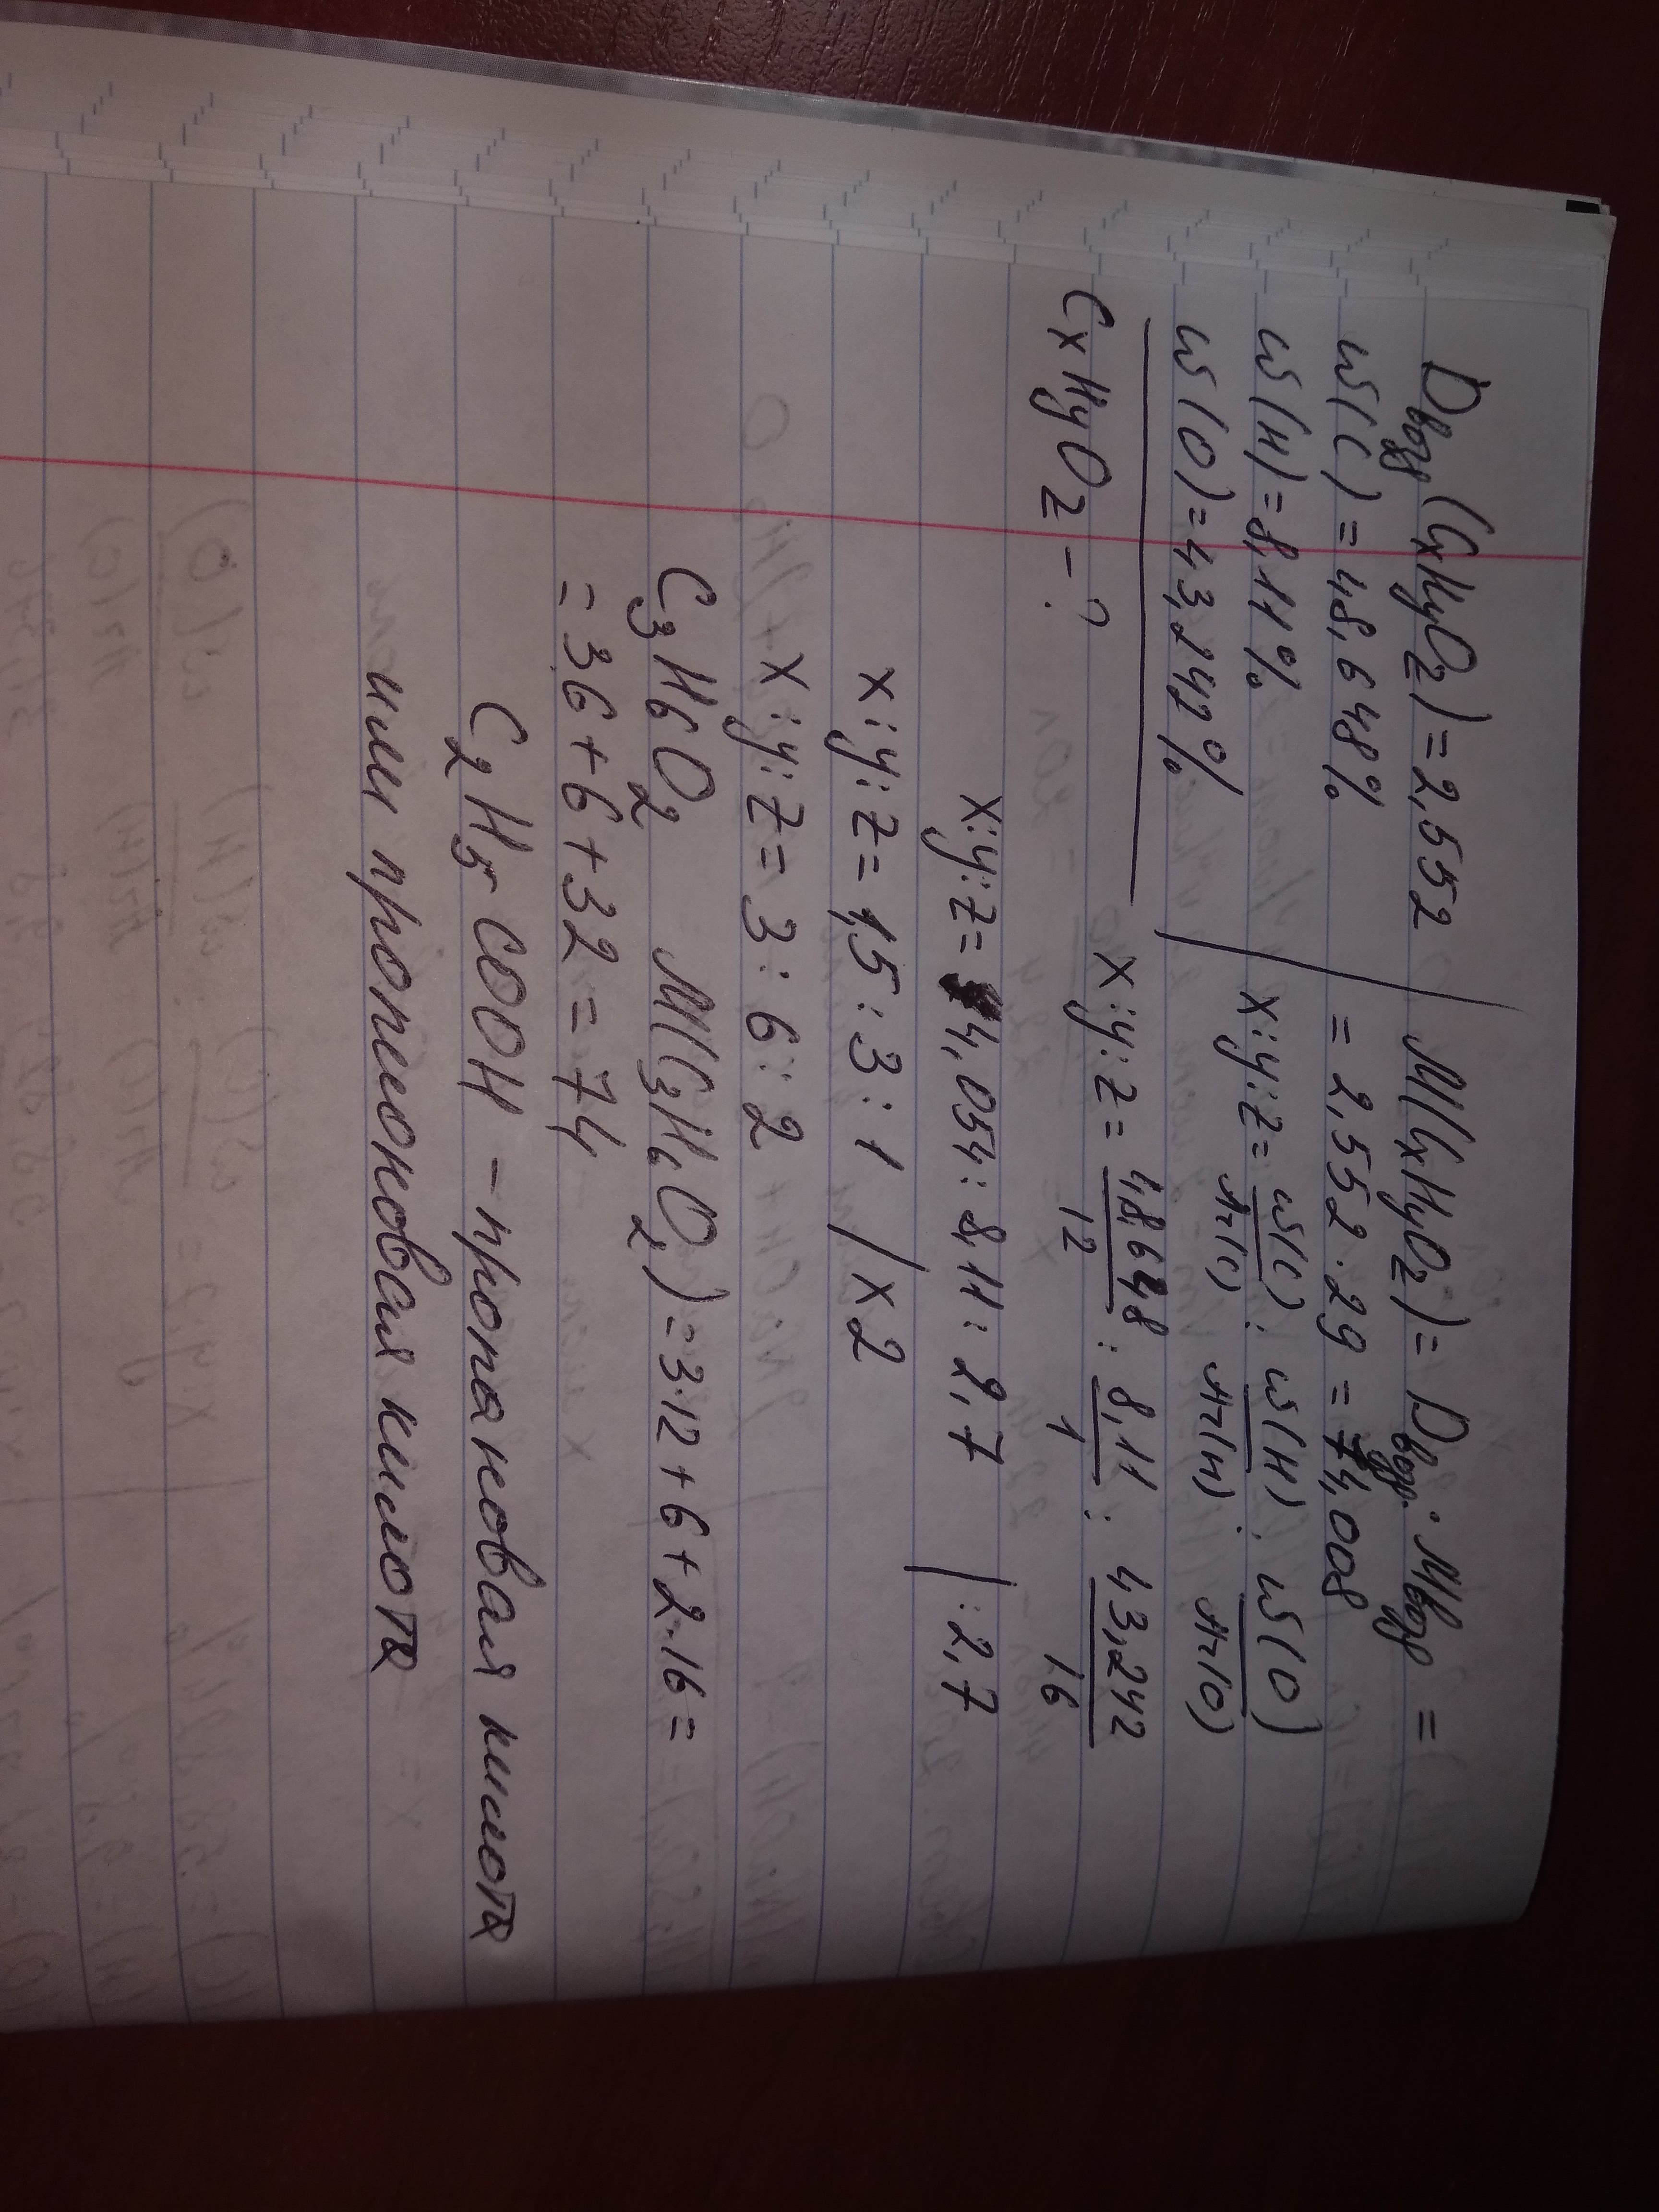 Dвозд(CxHyO2) = 2,552
w(C) = 48,648%
w(H) = 8,11%
w(O) = 43,242%
CxHyO2 - ?
M(CxHyO2) = Dвозд. · Mвозд =
= 2,552 · 29 = 74,008
x:y:z = w(C)/Ar(C) : w(H)/Ar(H) : w(O)/Ar(O)
x:y:z = 48,648/12 : 8,11/1 : 43,242/16
x:y:z = 4,054 : 8,11 : 2,7 | :2,7
x:y:z = 1,5 : 3 : 1 | x 2
x:y:z = 3 : 6 : 2
C3H6O2 M(C3H6O2) = 3·12 + 6 + 2·16 =
= 36 + 6 + 32 = 74
C2H5COOH – пропановая кислота
или пропионовая кислота